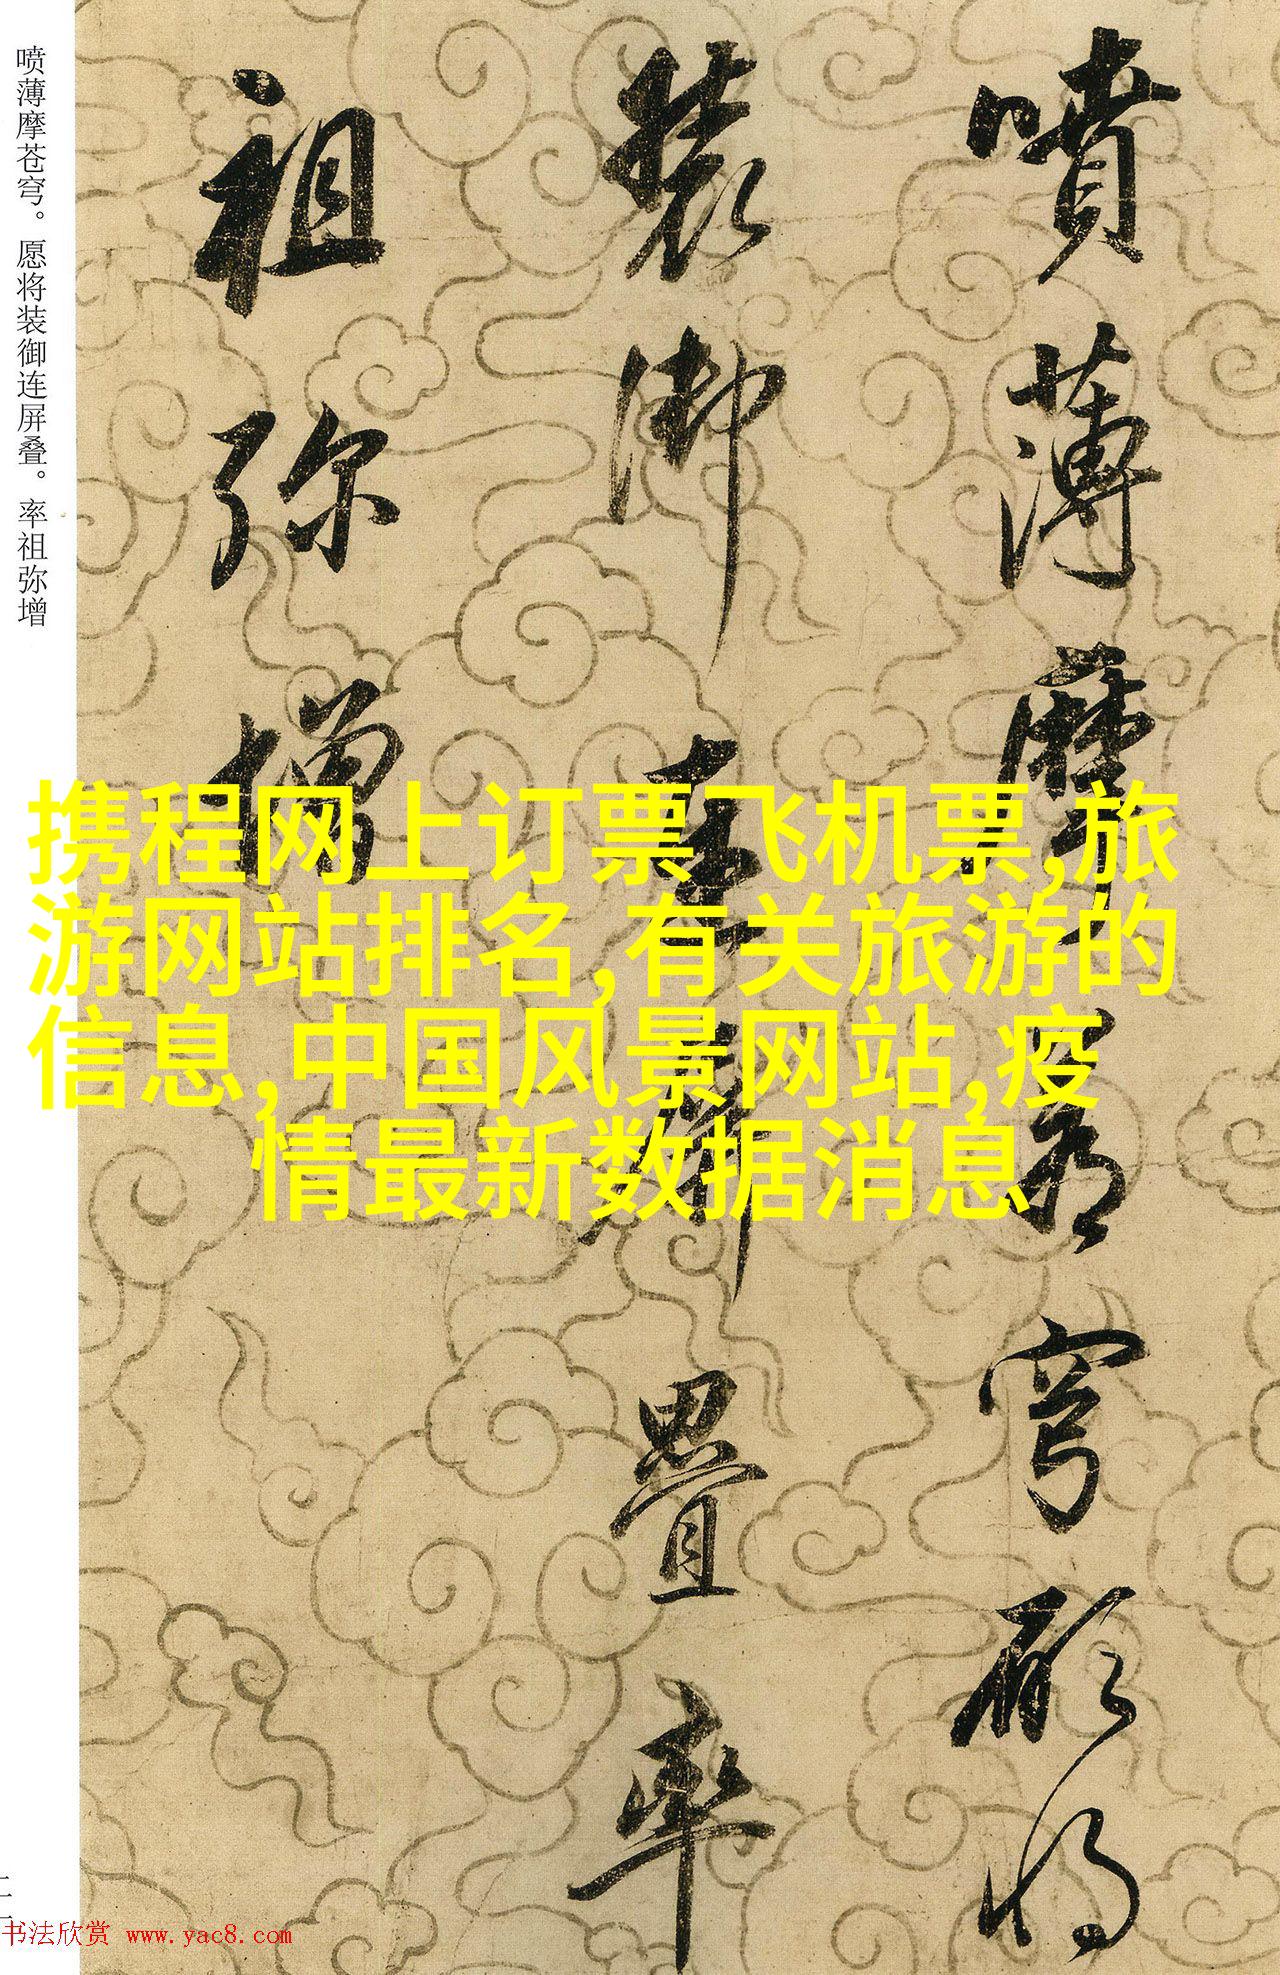 喷薄摩苍穹。愿将装御连屏叠。率祖弥增
噴薄摩蒼穹願将
装御連屏疊率
祖弥增
携程网上订票飞机票,旅
游网站排名,有关旅游的
信息,中国风景网站,疫
情最新数据消息
书法欣赏 www.yac8.com